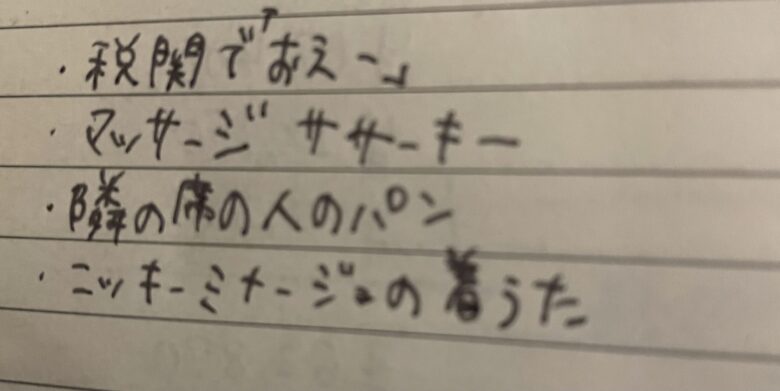 ・税関で「おえー」
・マッサージ ササーキー
・隣の席の人のパン
・ニッキーミナージュの着うた